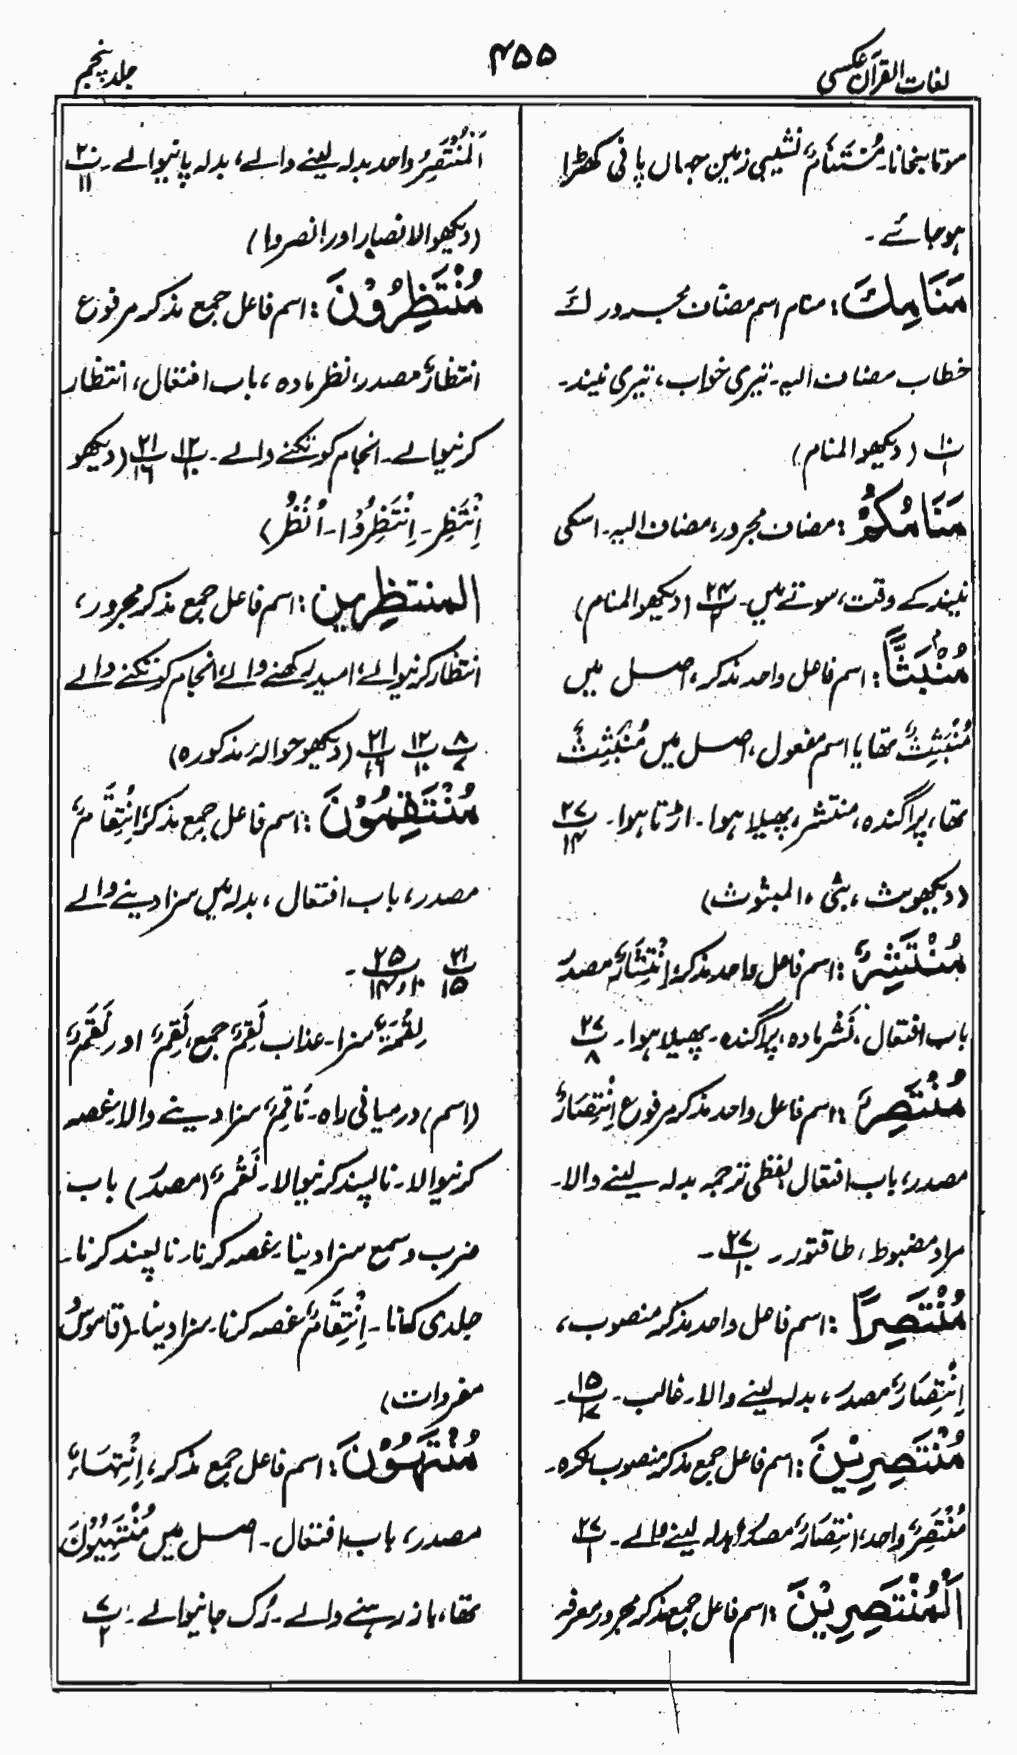 لغات القرآن عکسی
۴۵۵
جلد پنجم
موتا بخانا۔ مُسْتَنَامٌ نشیبی زمین جہاں پانی کھڑا
ہو جائے۔
مَنَامِكَ: منام اسم مضاف مجرور لَكَ
خطاب مضاف الیہ۔ تیری خواب، تیری نیند۔
(دیکھو المنام)
مَنَامُكُمْ: مضاف مجرور، مضاف الیہ۔ اسکی
نیند کے وقت، سوتے میں۔ (دیکھو المنام)
مُنْبَثًّا: اسم فاعل واحد مذکر، اصل میں
مُنْبَثِثٌ تھا یا اسم مفعول، اصل میں مُنْبَثِثٌ
تھا، پراگندہ، منتشر، پھیلا ہوا۔ اڑتا ہوا۔ ۲۷/۱۴
(دیکھو بث، بثی، المبثوث)
مُنْتَشِرٌ: اسم فاعل واحد مذکر، اِنْتِشَارٌ مصدر
باب افتعال، نَشْر مادہ، پراگندہ۔ پھیلا ہوا۔ ۲۷/۸
مُنْتَصِرٌ: اسم فاعل واحد مذکر مرفوع اِنْتِصَارٌ
مصدر، باب افتعال، لفظی ترجمہ بدلہ لینے والا۔
مراد مضبوط، طاقتور۔ ۲۷/۱۰۔
مُنْتَصِرًا: اسم فاعل واحد مذکر منصوب،
اِنْتِصَارٌ مصدر، بدلہ لینے والا۔ غالب۔ ۱۵/۱۷۔
مُنْتَصِرِيْنَ: اسم فاعل جمع مذکر منصوب نکرہ۔
مُنْتَصِرٌ واحد، اِنْتِصَارٌ مصدر، بدلہ لینے والے۔ ۲۷/۱
اَلْمُنْتَصِرِيْنَ: اسم فاعل جمع مذکر مجرور معرفہ
اَلْمُنْتَصِرُ واحد بدلہ لینے والے، بدلہ پانیوالے۔ ۲۰/۱۱
(دیکھو الانصار اور انصروا)
مُنْتَظِرُوْنَ: اسم فاعل جمع مذکر مرفوع
انتظارٌ مصدر، نظر مادہ، باب افتعال، انتظار
کرنیوالے۔ انجام کو تکنے والے۔ ۱۲/۱۰ ۲۱/۱۶ (دیکھو
اِنْتَظِر۔ اِنْتَظِرُوْا۔ اُنْظُر)
المنتظرین: اسم فاعل جمع مذکر مجرور،
انتظار کرنیوالے، امید رکھنے والے، انجام کو تکنے والے
۸/۷ ۱۲/۱۰ ۲۱/۱۶ (دیکھو حوالہ مذکورہ)
مُنْتَقِمُوْنَ: اسم فاعل جمع مذکر، اِنْتِقَامٌ
مصدر، باب افتعال، بدلہ میں سزا دینے والے
۲۱/۱۵ ۲۵/۱۰و۱۴۔
نِقْمَةٌ سزا۔ عذاب نِقَمٌ جمع، نَقِمٌ اور نَقَمٌ
(اسم) درمیانی راہ۔ نَاقِمٌ سزا دینے والا۔ غصہ
کرنیوالا۔ ناپسند کرنیوالا۔ نَقْمٌ (مصدر) باب
ضرب و سمع سزا دینا، غصہ کرنا۔ ناپسند کرنا۔
جلدی کھانا۔ اِنْتِقَامٌ غصہ کرنا۔ سزا دینا۔ (قاموس و
مفردات)
مُنْتَهُوْنَ: اسم فاعل جمع مذکر، اِنْتِهَاءٌ
مصدر، باب افتعال۔ اصل میں مُنْتَهِيُوْنَ
تھا، باز رہنے والے۔ رُک جانیوالے۔ ۷/۲